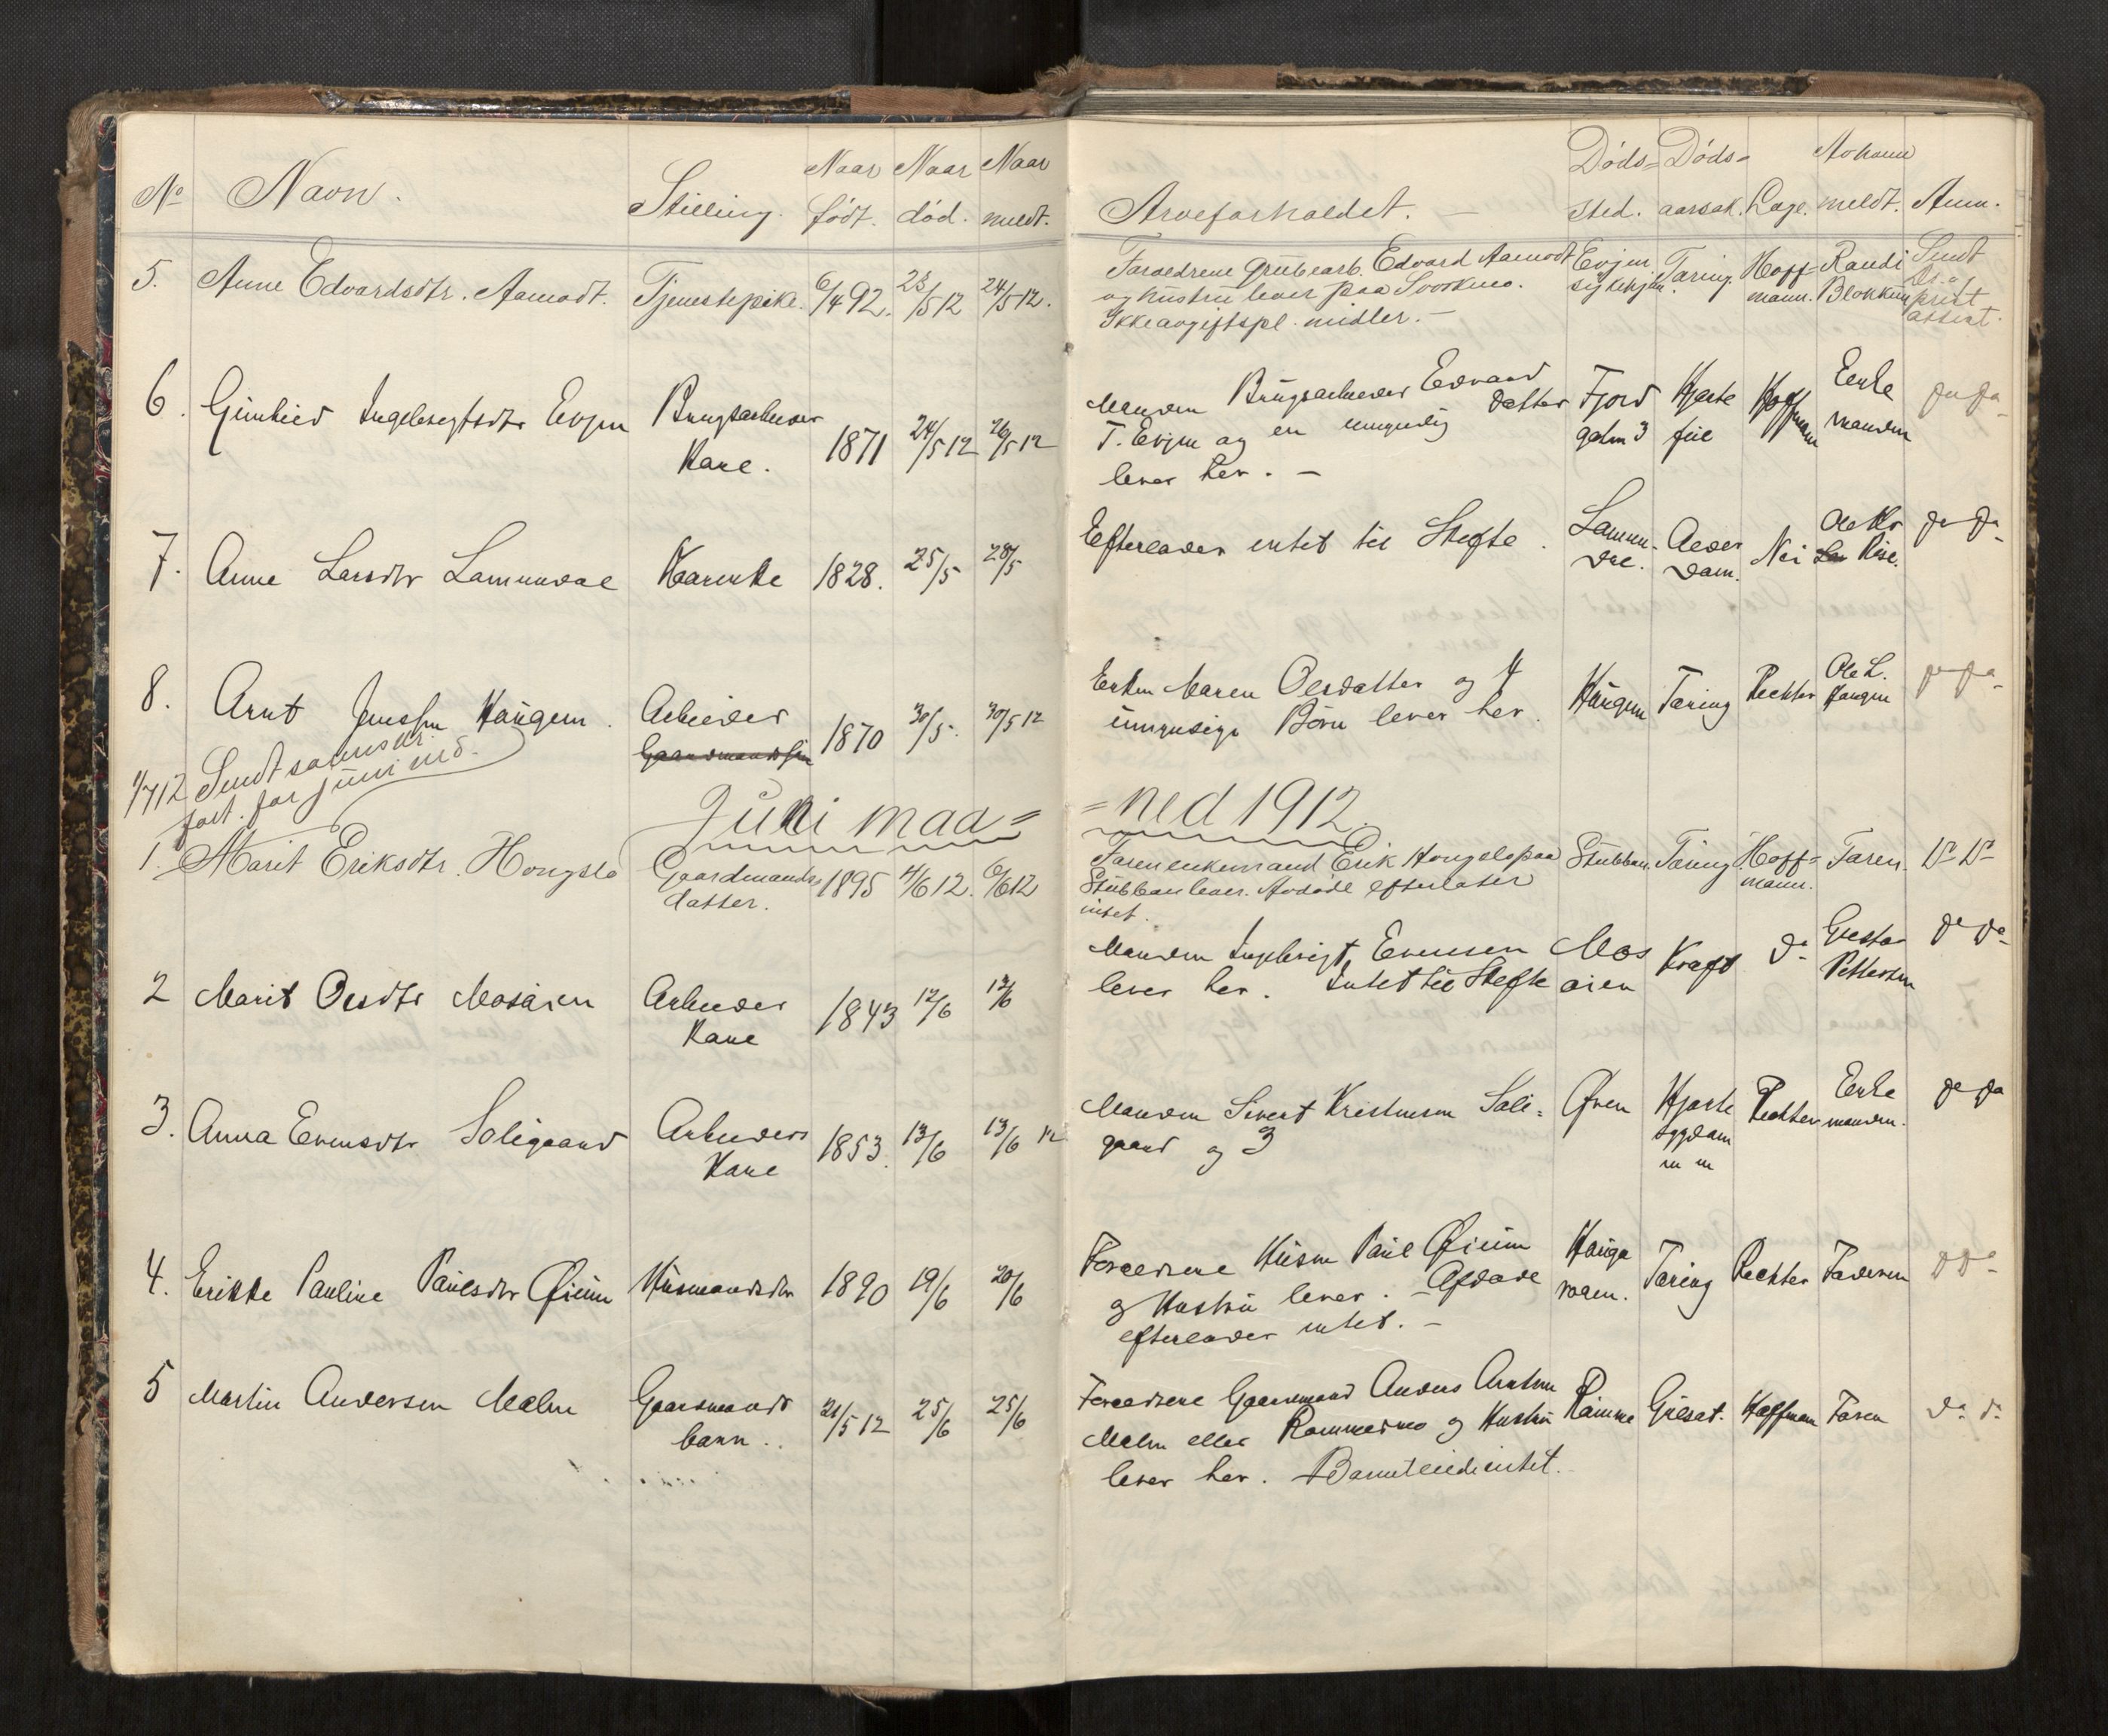 No Navn. Stilling. Naar født. Naar død. Naar meldt.
Arveforholdet. Døds= sted. Døds= aarsak. Læge. Av hvem meldt. Anm.
5. Anne Edvardsdtr. Aamodt. Tjenestepike. 6/4 92. 23/5 12 24/5 12.
Forældrene Grubearb. Edvard Aamodt
og hustru lever paa Svorkmo.
Ikke avgiftspl. midler. —
Evjen
sykehjem.
Tæring.
Hoff=
mann.
Randi
Blokkum
Sendt
prest
attest.
6. Gunhild Ingebrigtsdtr Evjen
Brugsarbeider
Kone.
1871 24/5 12 26/5 12
Manden Brugsarbeider Edvard
T. Evjen og en umyndig datter
lever her. —
Fjord
galm 3
Hjerte
feil
Hoffmann
Enke
manden
do do
7. Anne Larsdtr Lammedal Kaarenke 1828. 25/5 28/5
Efterlader intet til Skifte.
Alder
dom.
Nei
Ole Kr
Rise.
do do
8. Arnt Jenssen Haugen. Arbeider
Gaardmandssøn
1870 30/5. 30/5 12
Enken Maren Olsdatter og 4
umyndige Børn lever her.
Haugen Tæring Richter
Ole L.
Haugen
do do
1/7 12 Sendt
fort. for juni md.
Juni maa=
=ned 1912.
1. Marit Eriksdtr. Hongslo
Gaardmands
datter.
1895 4/6 12. 6/6 12
Faren enkemand Erik Hongslo paa
Stubban lever. Avdøde efterlater
intet.
Stubban. Tæring.
Hoff=
mann.
Faren. Do Do
2 Marit Olsdtr Mosaren
Arbeider
Kone
1843 12/6 12/6
Manden Ingebrigt Evensen
lever her. Intet til Skifte
Mos
aren
Kræft do
Gustav
Pettersen
do do
3. Anna Evensdtr Soligaard
Arbeiders
Kone
1853. 13/6 13/6 12
Manden Sivert Kristensen Soli=
gaard og 3
Hjerte
sygdom
m m
Richter
Enke
manden.
do do
4. Erikke Pauline Paulsdtr Øium Husmandsdtr 1890 19/6 20/6
Forældrene Husm Paul Øium
og Hustru lever. — Afdøde
efterlader intet. —
Tæring Richter Faderen do
5 Martin Andersen Malm
Gaardmands
barn.
21/5 12 25/6 25/6
Forældrene Gaardmand Anders Arntsen
Malm eller Rommesmo og Hustru
lever her. Barnet eied intet.
Gulsot. Hoffman Faren do do